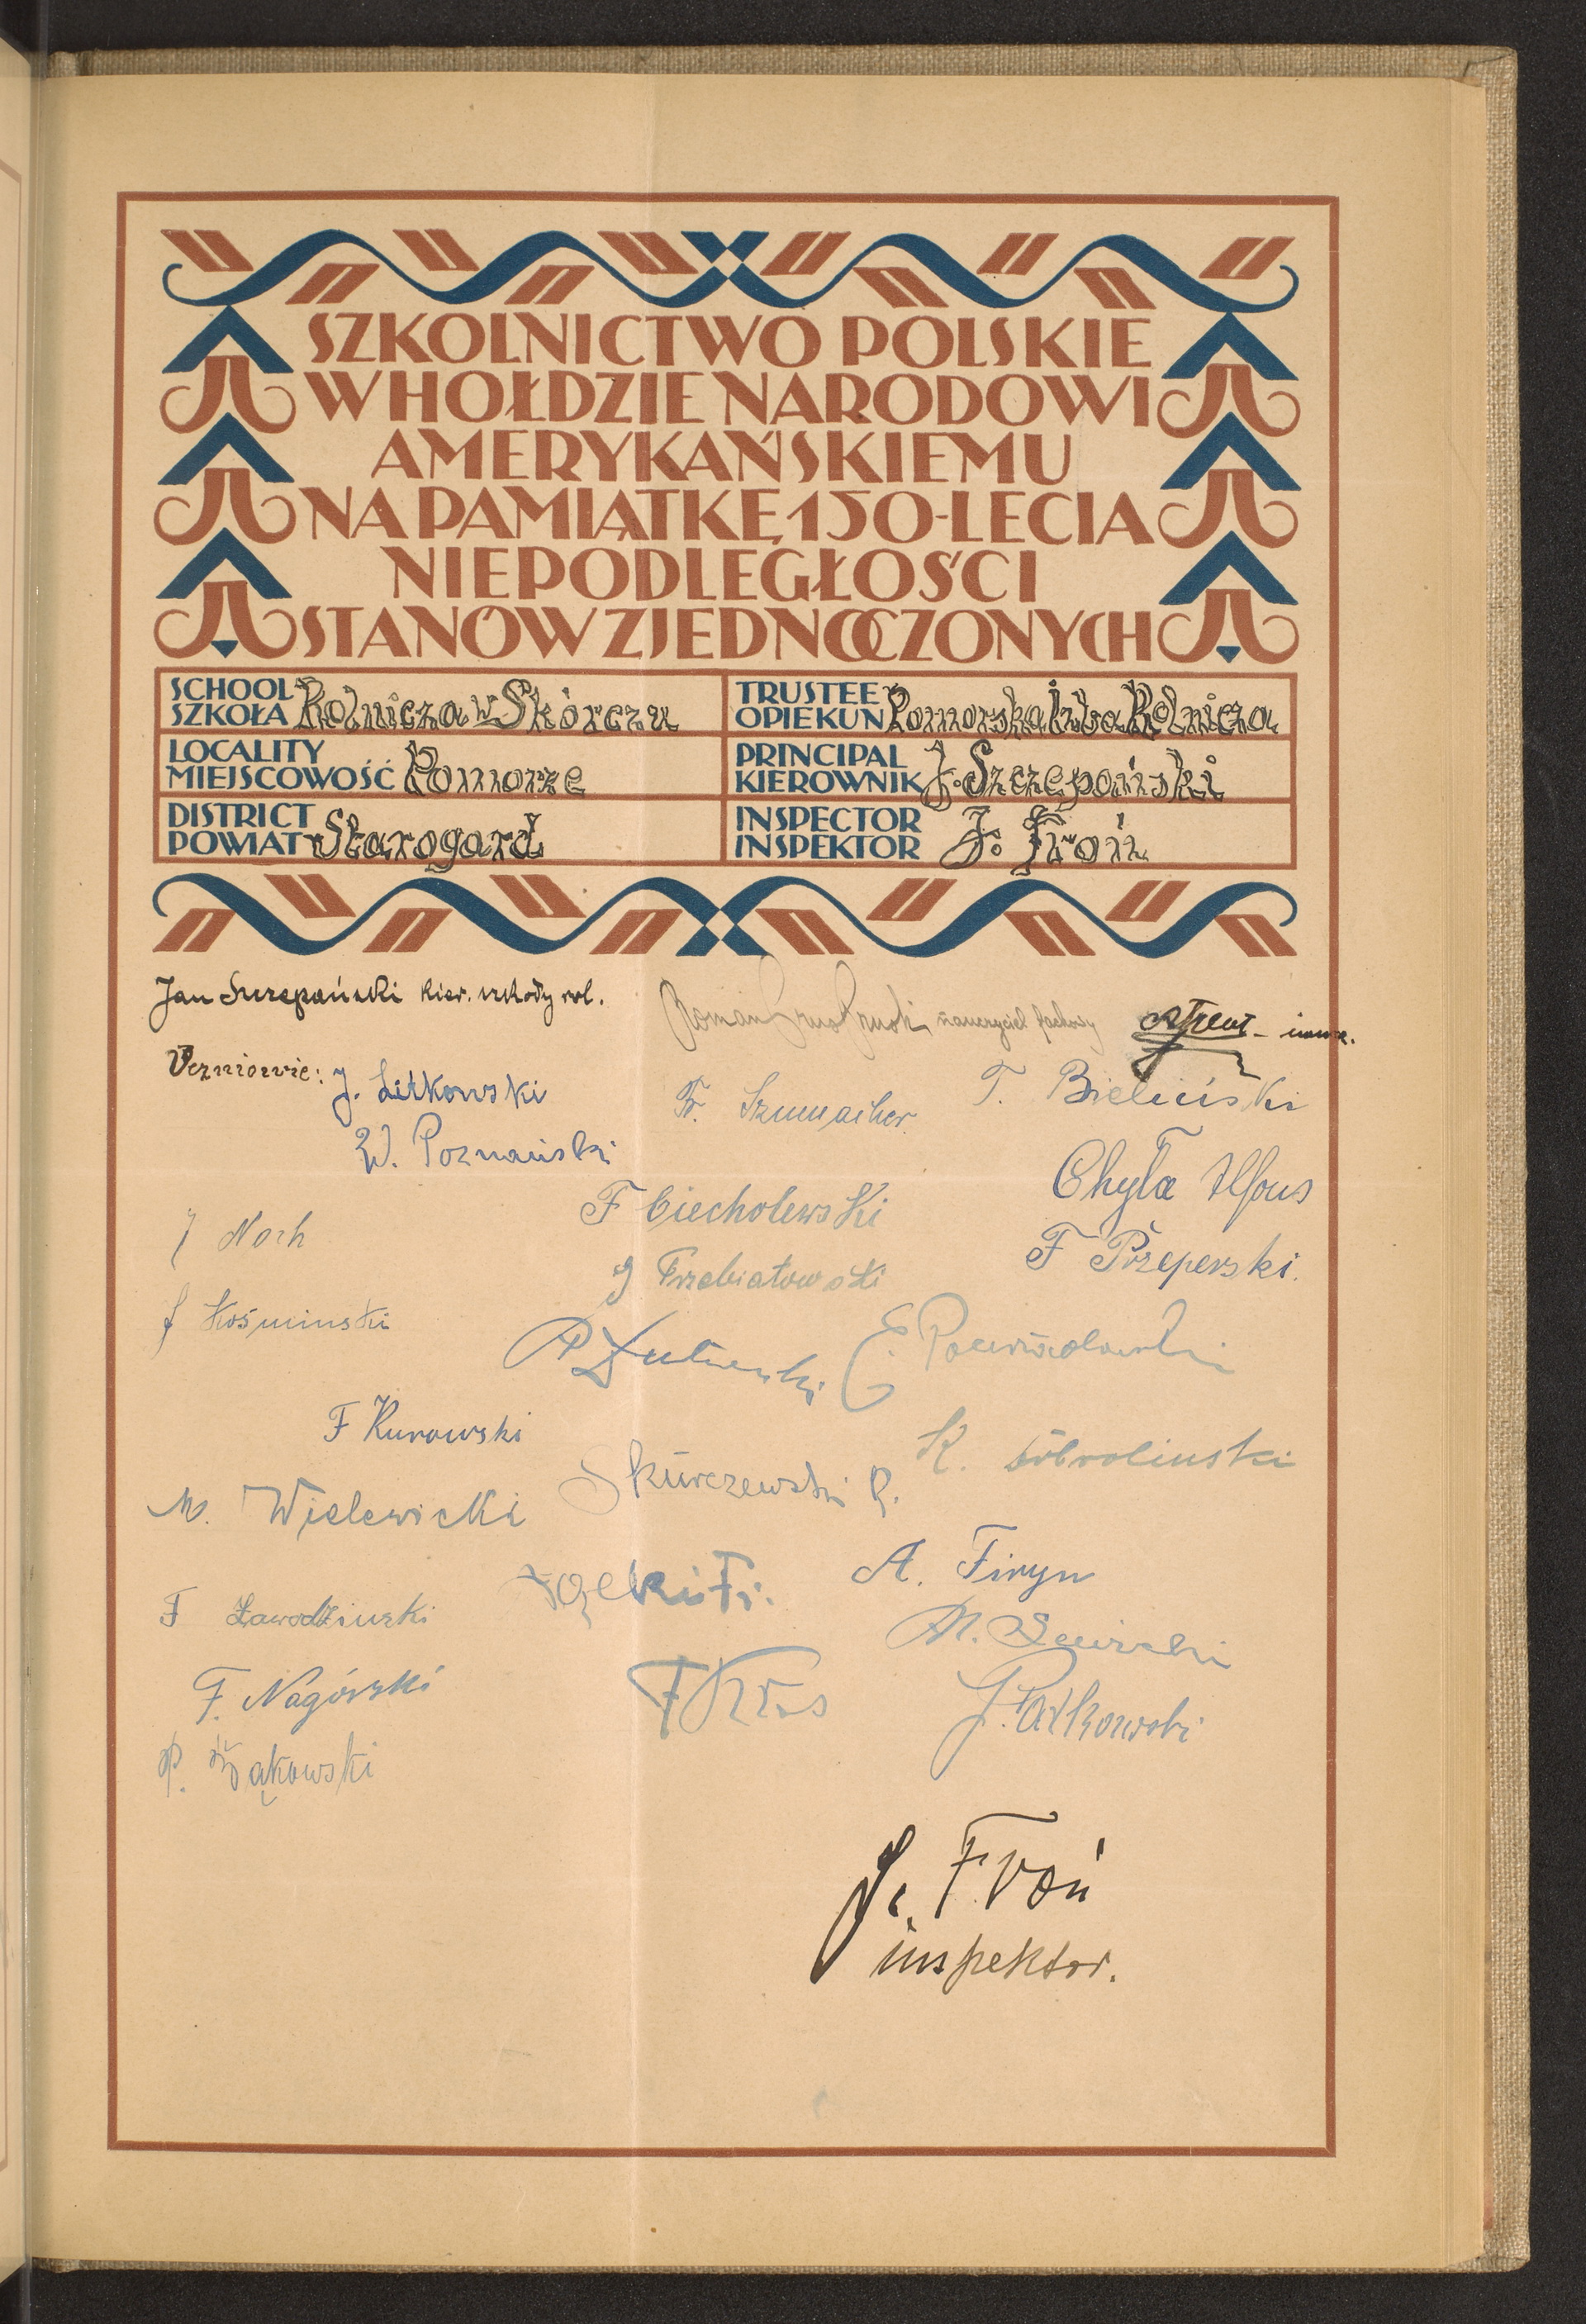 SZKOLNICTWO POLSKIE
W HOŁDZIE NARODOWI
AMERYKAŃSKIEMU
NA PAMIĄTKĘ 150-LECIA
NIEPODLEGŁOŚCI
STANÓW ZJEDNOCZONYCH
SCHOOL
SZKOŁA Rolnicza w Skórczu
TRUSTEE
OPIEKUN Pomorska Izba Rolnicza
LOCALITY
MIEJSCOWOŚĆ Pomorze
PRINCIPAL
KIEROWNIK J. Szczepański
DISTRICT
POWIAT Starogard
INSPECTOR
INSPEKTOR J. Froń
Jan Szczepański kier. szkoły rol.
Roman nauczyciel fachowy
Uczniowie: J. Litkowski
Fr. Szumacher.
T. Bieliński
W. Poznański
Chyła Alfons
F Ciecholewski
J Noch
F Przeperski.
J Trzebiatowski
J Kośminski
E.
F Kurowski
K. Dobrolinski
Skurczewski R.
M. Wielewicki
A. Firyn
F Zawodzinski
M.
F. Nagórski
F Kros
J. Patkowski
P. Bąkowski
J. Froń
inspektor.